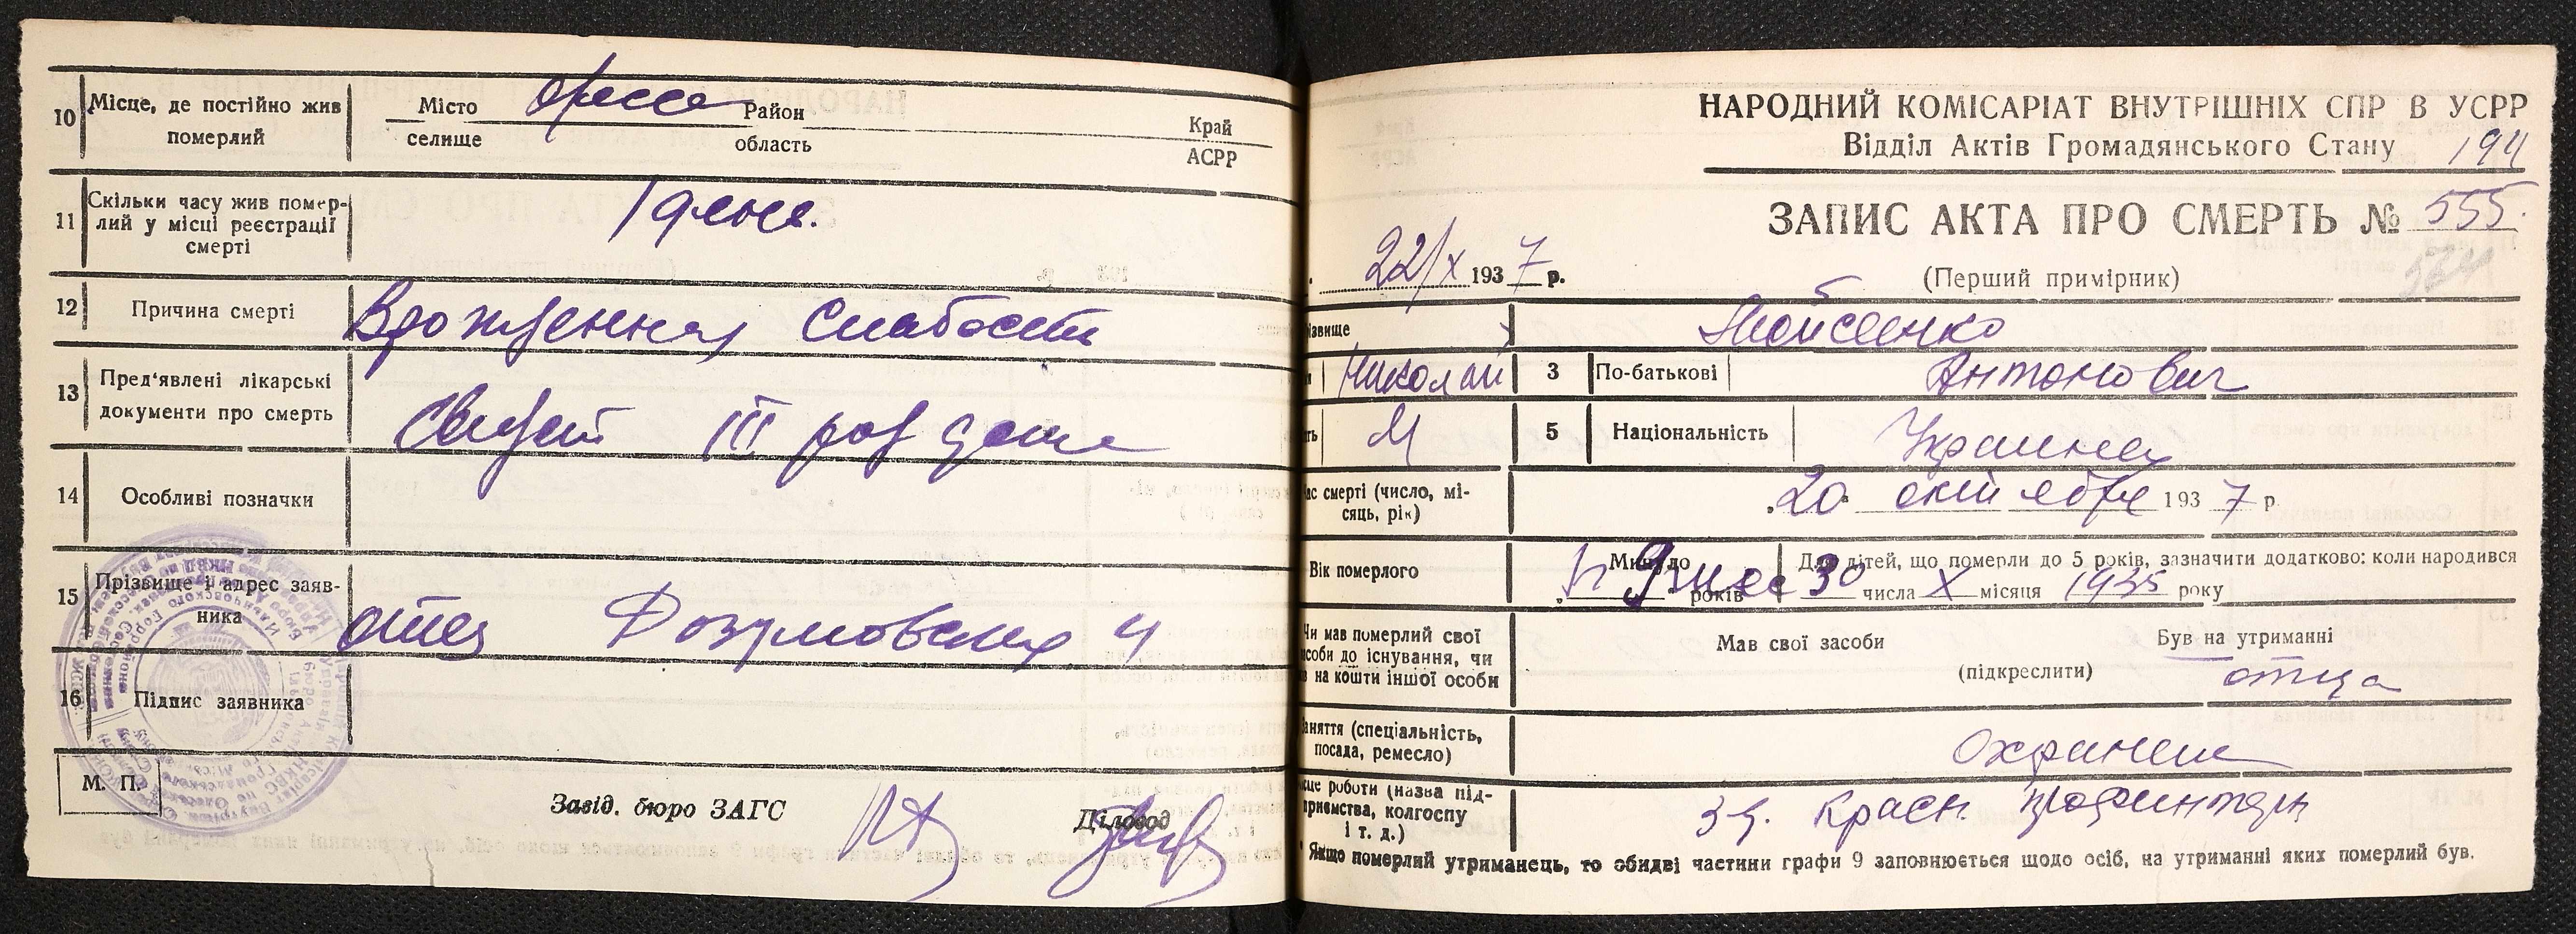 10 Місце, де постійно жив померлий
Місто селище Одесса Район область Край АСРР
11 Скільки часу жив помер-
лий у місці реєстрації
смерті
12 Причина смерті Врожденная слабость
13 Пред'явлені лікарські
документи про смерть III род дома
14 Особливі позначки
15 Прізвище і адрес заяв-
ника отец 4
16 Підпис заявника
М. П.
Завід. бюро ЗАГС Діловод
НАРОДНИЙ КОМІСАРІАТ ВНУТРІШНІХ СПР В УСРР
Відділ Актів Громадянського Стану 194
ЗАПИС АКТА ПРО СМЕРТЬ № 555.
524
22/X 1937 р. (Перший примірник)
ізвище Мойсеенко
Николай 3 По-батькові Антонович
ть М 5 Національність Украинец
ас смерті (число, мі-
сяць, рік) 20 октября 1937 р.
Вік померлого Минуло років Для дітей, що померли до 5 років, зазначити додатково: коли народився
30 числа X місяця 1935 року
Чи мав померлий свої
особи до існування, чи
в на кошти іншої особи
Мав свої засоби (підкреслити) Був на утриманні
отца
аняття (спеціальність,
посада, ремесло) Охранник
сце роботи (назва під-
приємства, колгоспу
і т. д.) Красн. Профинтерн
* Якщо померлий утриманець, то обидві частини графи 9 заповнюється щодо осіб, на утриманні яких померлий був.